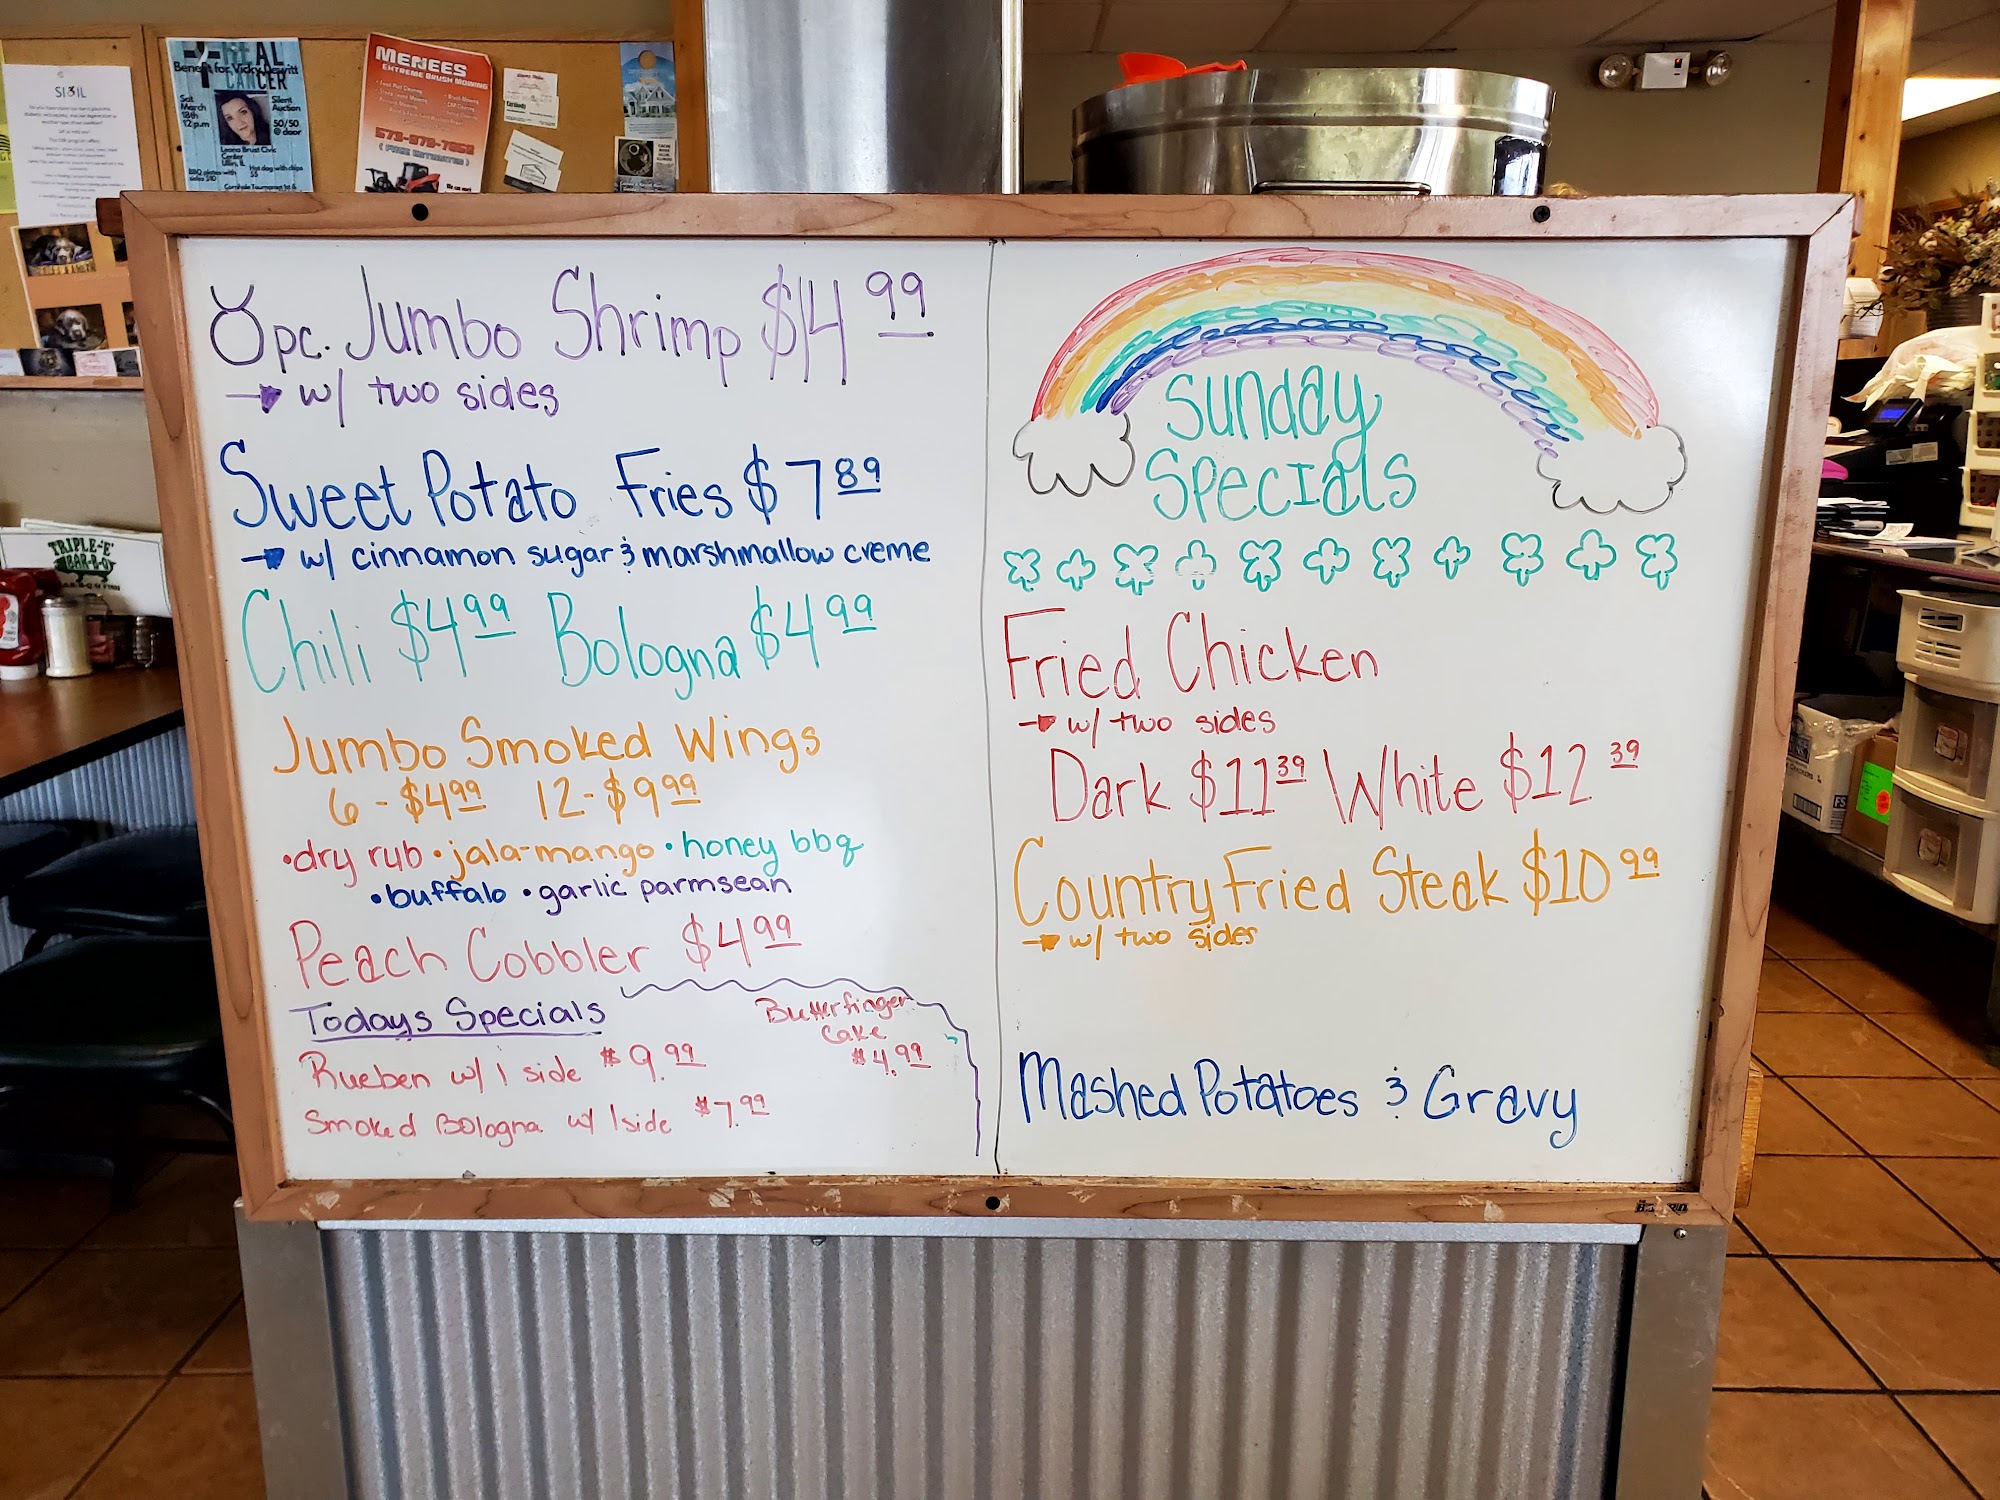 SI3IL
Benefit for Vicky Dewitt
CANCER
Sat
March
18th
12 p.m
Silent
Auction
50/50
@ door
Leana Brust Civic
Center
Ullin, IL
BBQ plates with
sides $10
Hot dog with chips
$5
Cornhole Tournament 1st &
MENEES
EXTREME BRUSH MOWING
( FREE ESTIMATES )
TRIPLE-"E"
BAR-B-Q
8pc. Jumbo Shrimp $14 99
w/ two sides
Sweet Potato Fries $7 89
w/ cinnamon sugar & marshmallow creme
Chili $4 99 Bologna $4 99
Jumbo Smoked Wings
6 - $4 99 12 - $9 99
• dry rub • jala-mango • honey bbq
• buffalo • garlic parmsean
Peach Cobbler $4 99
Todays Specials
Rueben w/ 1 side $9.99
Smoked Bologna w/ 1 side $7.99
Butterfinger
Cake
$4.99
Sunday
Specials
Fried Chicken
w/ two sides
Dark $11 39 White $12 39
Country Fried Steak $10 99
w/ two sides
Mashed Potatoes & Gravy